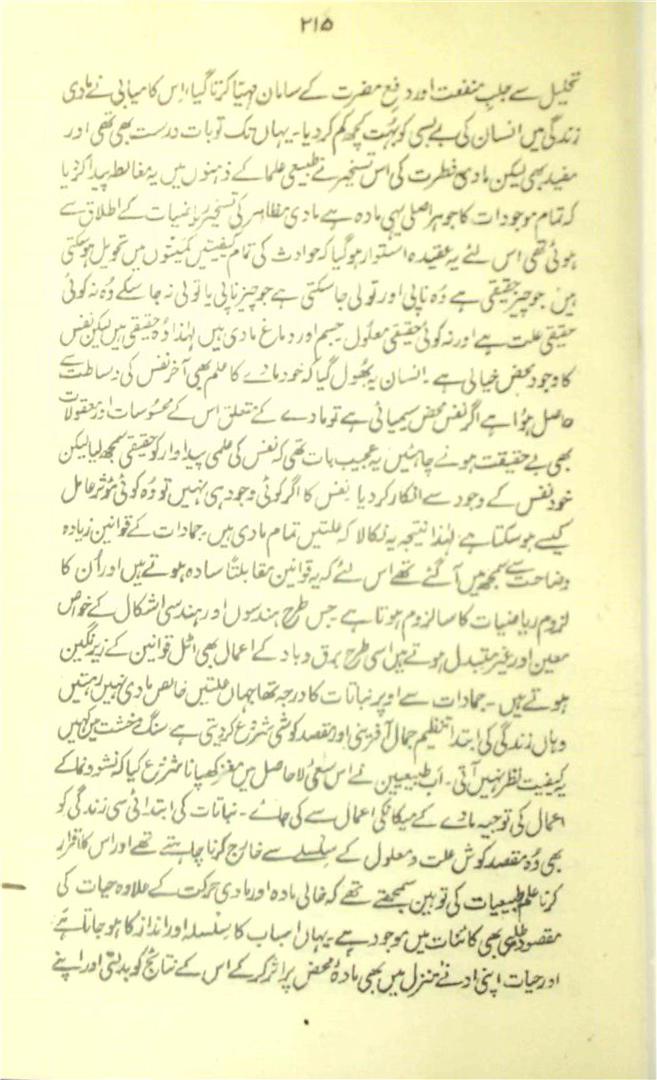 ۲۱۵
تحلیل سے جلبِ منفعت اور دفعِ مضرت کے سامان مہیّا کرتا گیا، اِس کامیابی نے مادی
زندگی میں انسان کی بے بسی کو بہُت کچھ کم کر دیا ۔ یہاں تک تو بات درست بھی تھی اور
مفید بھی لیکن مادی فطرت کی اس تسخیر نے طبیعی علما کے ذہنوں میں یہ مغالطہ پیدا کر دیا
کہ تمام موجودات کا جوہر اصلی یہی مادہ ہے مادی مظاہر کی تسخیر ریاضیات کے اطلاق سے
ہوئی تھی اس لئے یہ عقیدہ استوار ہو گیا کہ حوادث کی تمام کیفیتیں کمیتوں میں تحویل ہو سکتی
ہیں ۔ جو چیز حقیقی ہے وُہ ناپی اور تولی جا سکتی ہے جو چیز ناپی یا تولی نہ جا سکے وُہ نہ کوئی
حقیقی علت ہے اور نہ کوئی حقیقی معلول ۔ جسم اور دماغ مادی ہیں لہٰذا وُہ حقیقی ہیں لیکن نفس
کا وجود محض خیالی ہے ۔ انسان یہ بھُول گیا کہ خود مادے کا علم بھی آخر نفس کی وساطت سے
حاصل ہؤا ہے اگر نفس محض سیمیائی ہے تو مادے کے متعلق اس کے محسُوسات اور معقولات
بھی بے حقیقت ہونے چاہئیں یہ عجیب بات تھی کہ نفس کی علمی پیداوار کو حقیقی سمجھ لیا لیکن
خود نفس کے وجود سے انکار کر دیا ۔ نفس کا اگر کوئی وجود ہی نہیں تو وُہ کوئی مؤثر عامل
کیسے ہو سکتا ہے لہٰذا نتیجہ یہ نکالا کہ علتیں تمام مادی ہیں ۔ جمادات کے قوانین زیادہ
وضاحت سے سمجھ میں آ گئے تھے اس لئے کہ یہ قوانین مقابلتًا سادہ ہوتے ہیں اور اُن کا
لزوم ریاضیات کا سا لزوم ہوتا ہے ۔ جس طرح ہندسوں اور ہندسی اشکال کے خواص
معین اور غیر متبدل ہوتے ہیں اسی طرح برق و باد کے اعمال بھی اٹل قوانین کے زیر نگین
ہوتے ہیں ۔ جمادات سے اوپر نباتات کا درجہ تھا جہاں علتیں خالص مادی نہیں رہتیں
وہاں زندگی کی ابتدا تنظیم جمال آفرینی اور مقصد کوشی شرُوع کر دیتی ہے سنگ و خشت میں کہیں
یہ کیفیت نظر نہیں آتی ۔ اب طبیعیین نے اس سعیٔ لاحاصل میں مغز کھپانا شرُوع کیا کہ نشوونما کے
اعمال کی توجیہ مادے کے میکانکی اعمال سے کی جائے ۔ نباتات کی ابتدائی سی زندگی کو
بھی وُہ مقصد کوش علت و معلول کے سِلسلے سے خارج کرنا چاہتے تھے اور اس کا اقرار
کرنا علم طبیعیات کی توہین سمجھتے تھے کہ خالی مادہ اور مادی حرکت کے علاوہ حیات کی
مقصود طلبی بھی کائنات میں موجود ہے ۔ یہاں اسباب کا سِلسلہ اور انداز کا ہو جاتا ہے
اور حیات اپنی ادنےٰ منزل میں بھی مادۂ محض پر اثر کر کے اس کے نتائج کو بدلتی اور اپنے